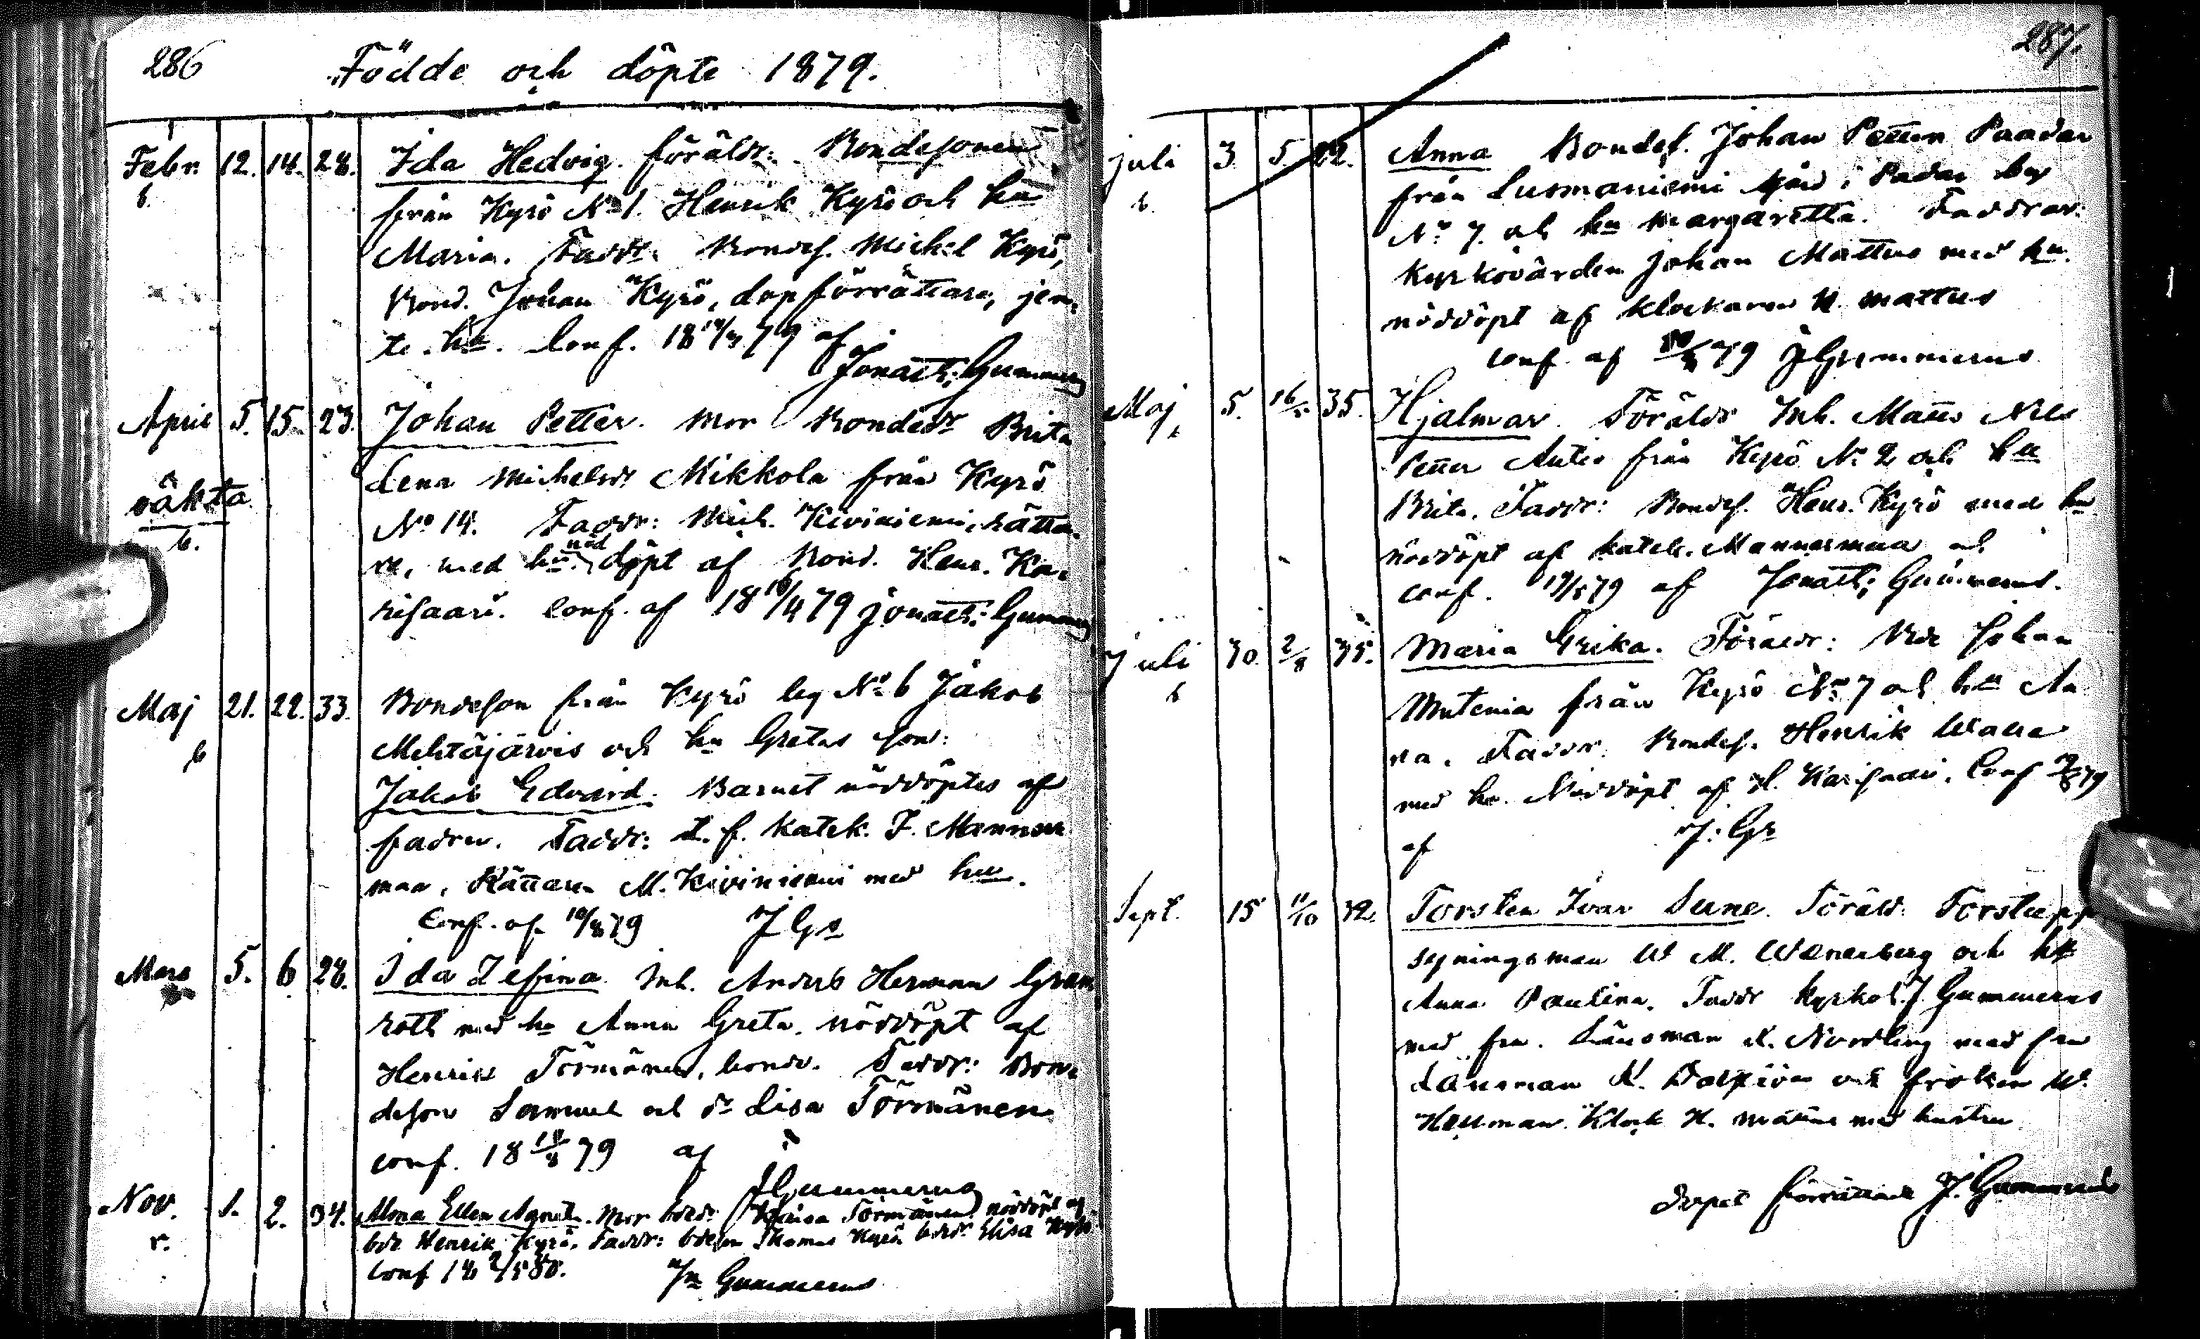 286
Födde och döpte 1879.
Febr. 12. 14. 28. Ida Hedvig. föräldr: Bondesonen
från Kyrö No 1. Henrik Kyrö och hu
Maria. Faddr. Bondes. Michel Kyrö,
Bond. Johan Kyrö, dopförrättare, jem-
te hu. Conf. 18 79 af
Jonath: Gummerus
April 5. 15. 23. Johan Petter. Mor Bondedr Brita
Lena Michelsdr Mikkola från Kyrö
oäkta
No 14. Faddr: Mich. Kiviniemi, rätta-
re, med hu. nöd döpt af Bond. Henr. Ka-
risaari. Conf. af 18 10/4 79 Jonath: Gummerus
Maj 21. 22. 33. Bondeson från Kyrö by No 6 Jakob
Mehtäjärvis och hu Gretas son:
Jakob Edvard. Barnet nöddöptes af
fadren. Faddr: t. f. katek. F. Manner-
maa, Rättaren M. Kiviniemi med hu.
Conf. af 10/8 79 J Gs
Mars 5. 6 28. Ida Zefina Inh. Anders Herman Gran
roth med hu Anna Greta. nöddöpt af
Henrik Törmänen, bonde. Faddr: Bon-
deson Samuel och dr Lisa Törmänen
conf. 18 10/8 79 af
J Gummerus
Nov. 1. 2. 34. Alma Ellen Agneta. Mor bdedr Kaisa Törmänen nöddöpt af
r. bde Henrik Kyrö. Faddr: bdesn Thomas Kyrö bdedr Elisa Kyrö
Conf 18 2/5 80. Jn Gummerus
287.
Juli 3. 5 22. Anna Bondes. Johan Petter Paadar
från Lusmaniemi gård i Padar by
No 7. och hu Margaretta. Faddrar:
Kyrkovärden Johan Mattus med hu.
nöddöpt af klockaren H. Mattus
conf. af 79 J Gummerus
Maj 5. 16/5 35. Hjalmar. Föräldr Inh. Matts Nils
Petter Antis från Kyrö No 2 och hu
Brita. Faddr: Bondes. Henr. Kyrö med hu
nöddöpt af katek. Mannermaa och
conf. 19/5 79 af Jonath: Gummerus.
Juli 30 2/8 35. Maria Erika. Föräldr: Bde Johan
Mutenia från Kyrö No 7 och hu An
na. Faddr. Bondes. Henrik Walle
med hu. Nöddöpt af H. Karisaari. Conf 79
af J. Gs
Sept. 15 11/10 32. Torsten Ivar Sune. Föräldr. Forstupp
syningsman W M. Wænerberg och hu
Anna Paulina. Faddr Kyrkoh. J. Gummerus
med fru. Länsman K. Nordling med fru
Länsman K. och fröken W.
Hellman. Klock H. Mattus med hustru
Dopet förrättade J. Gummerus